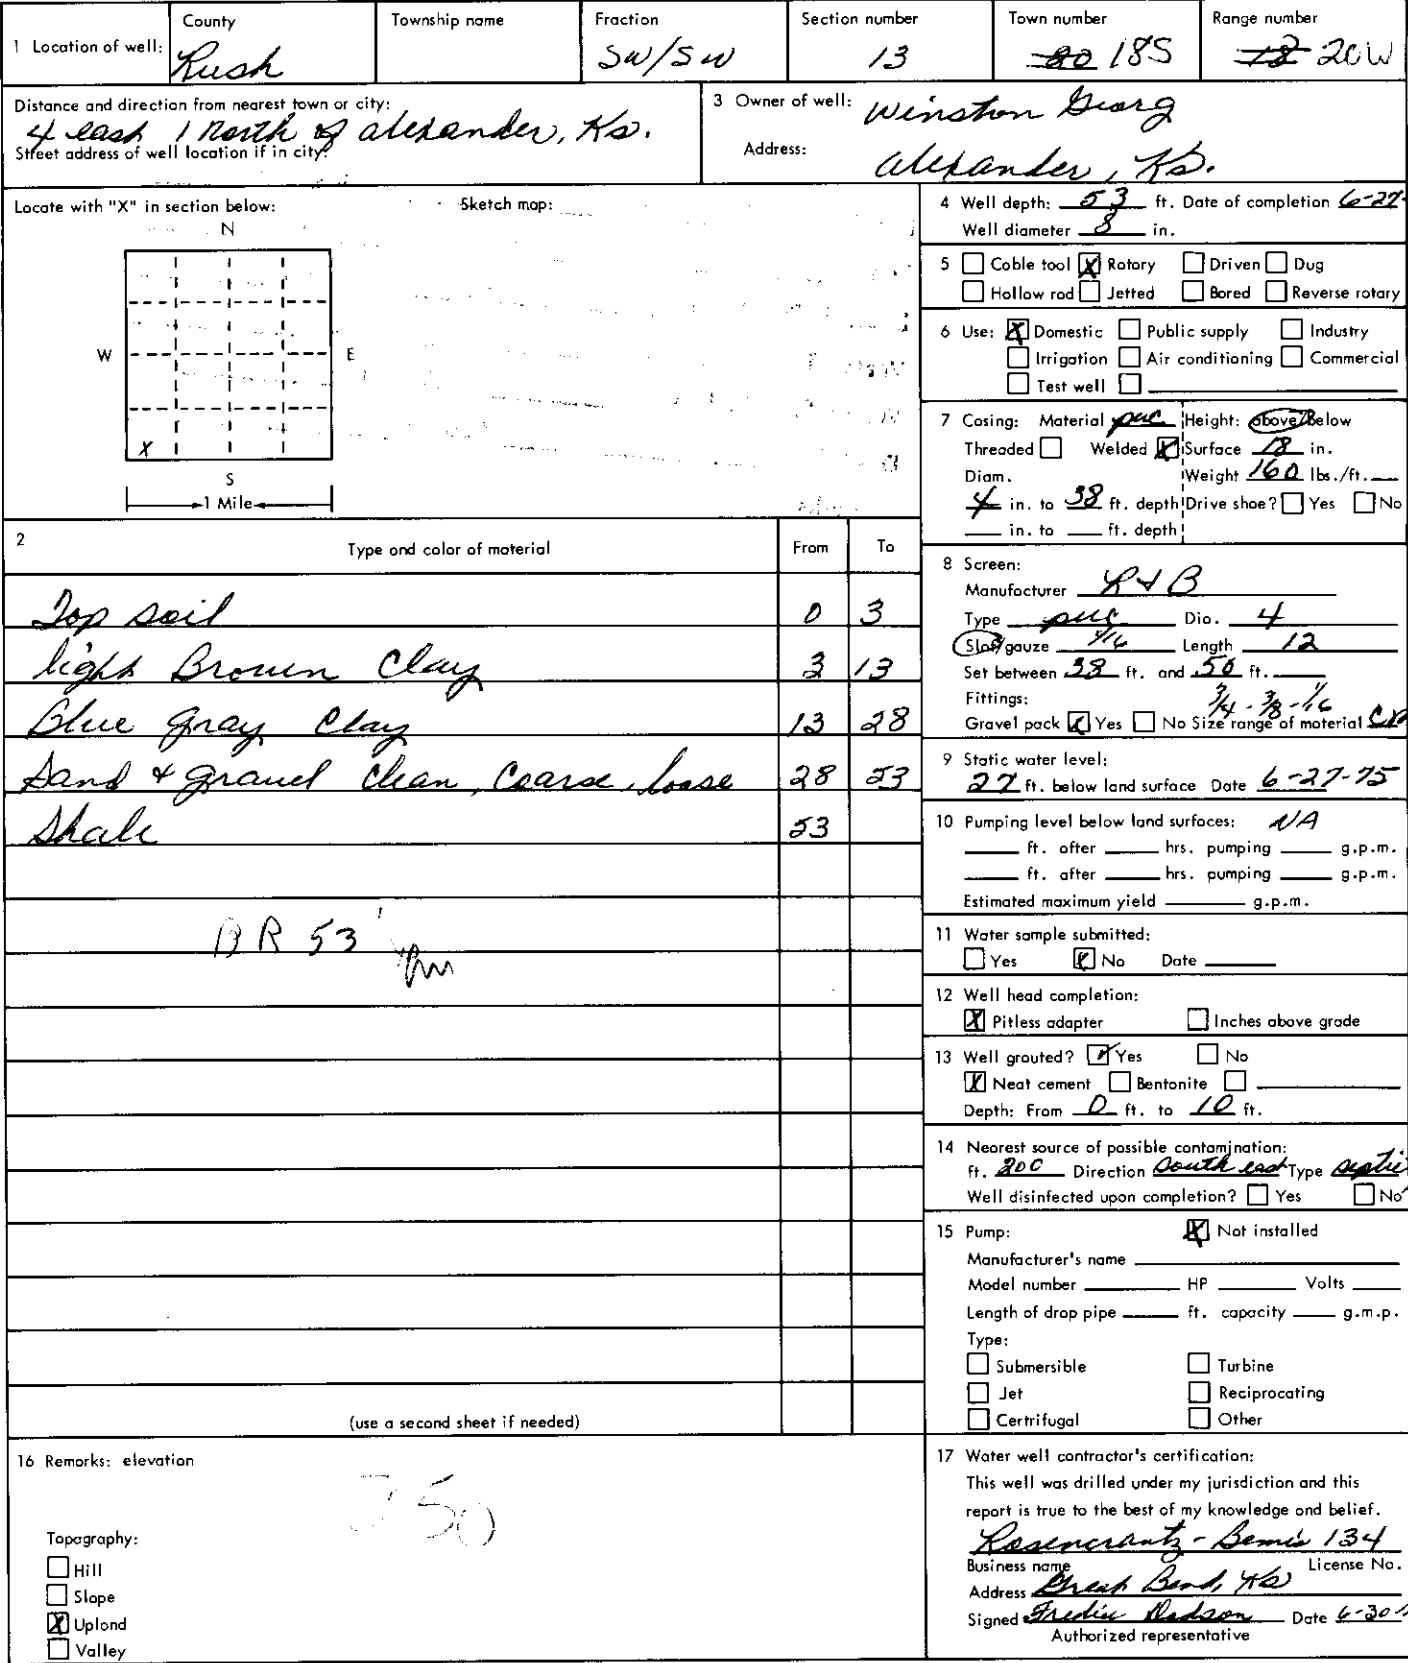 1 Location of well:
County
Rush
Township name
Fraction
SW/SW
Section number
13
Town number
20 18S
Range number
18 20W
Distance and direction from nearest town or city:
4 east 1 North of alexander, Ks.
Street address of well location if in city:
3 Owner of well: Winston Georg
Address:
alexander, Ks.
Locate with "X" in section below:
Sketch map:
N
W
E
X
S
1 Mile
4 Well depth: 53 ft. Date of completion 6-27-
Well diameter 8 in.
5 Cable tool X Rotory Driven Dug
Hollow rod Jetted Bored Reverse rotary
6 Use: X Domestic Public supply Industry
Irrigation Air conditioning Commercial
Test well
7 Casing: Material pvc Height: above/Below
Threaded Welded X Surface 18 in.
Diam. Weight 160 lbs./ft.
4 in. to 38 ft. depth Drive shoe? Yes No
in. to ft. depth
2
Type and color of material
From
To
Top soil 0 3
light Brown Clay 3 13
Blue Gray Clay 13 28
Sand & gravel clean, Coarse, loose 28 53
Shale 53
BR 53'
(use a second sheet if needed)
8 Screen:
Manufacturer R & B
Type pvc Dia. 4
Slot/gauze 1/16 Length 12
Set between 38 ft. and 50 ft.
Fittings: 3/4 - 3/8 - 1/16
Gravel pack X Yes No Size range of material
9 Static water level:
27 ft. below land surface Date 6-27-75
10 Pumping level below land surfaces: NA
ft. after hrs. pumping g.p.m.
ft. after hrs. pumping g.p.m.
Estimated maximum yield g.p.m.
11 Water sample submitted:
Yes X No Date
12 Well head completion:
X Pitless adapter Inches above grade
13 Well grouted? Yes No
X Neat cement Bentonite
Depth: From 0 ft. to 10 ft.
14 Nearest source of possible contamination:
ft. 200 Direction South east Type septic
Well disinfected upon completion? Yes No
15 Pump: X Not installed
Manufacturer's name
Model number HP Volts
Length of drop pipe ft. capacity g.m.p.
Type:
Submersible Turbine
Jet Reciprocating
Certrifugal Other
16 Remarks: elevation
Topography:
Hill
Slope
X Upland
Valley
17 Water well contractor's certification:
This well was drilled under my jurisdiction and this
report is true to the best of my knowledge and belief.
Rosencrantz-Bemis 134
Business name License No.
Address Great Bend, Ks
Signed Date 6-30-
Authorized representative